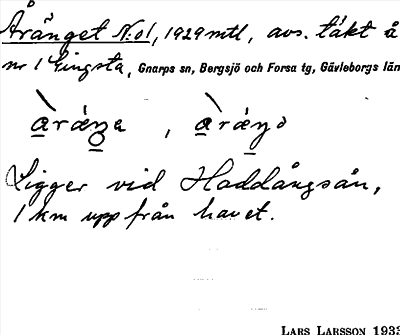 Åränget N:o1, 1929 mtl, avs. täkt å
nr 1 Gingsta, Gnarps sn, Bergsjö och Forsa tg, Gävleborgs län
Ligger vid Haddångsån,
1 km upp från havet.
LARS LARSSON 1933